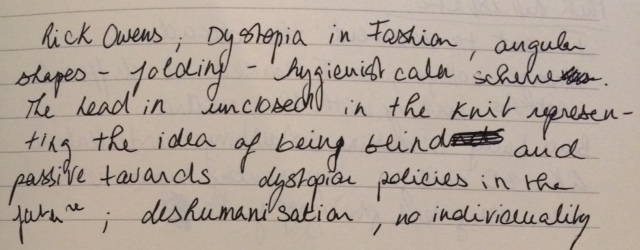 Rick Owens ; Dystopia in Fashion , angular
shapes - folding - hygienist calm scheme .
The head in unclosed in the knit represen-
ting the idea of being blind and
passive towards dystopian policies in the
future ; deshumanisation , no individuality